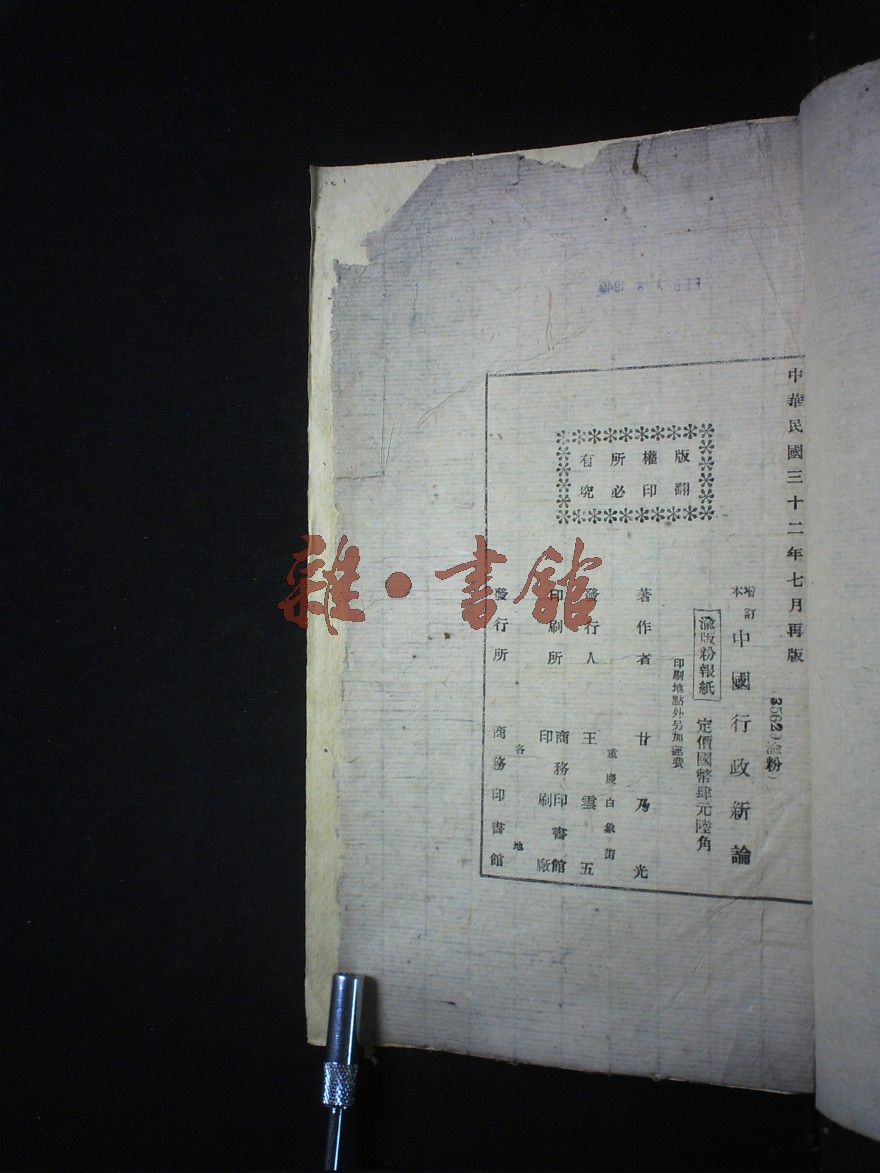 中華民國三十二年七月再版
增訂本 中國行政新論
渝版粉報紙 定價國幣肆元陸角
印刷地點外另加運費
版權所有
翻印必究
著作者 甘乃光
重慶白象街
發行人 王雲五
印刷所 商務印書館印刷廠
各地
發行所 商務印書館
雜·書館